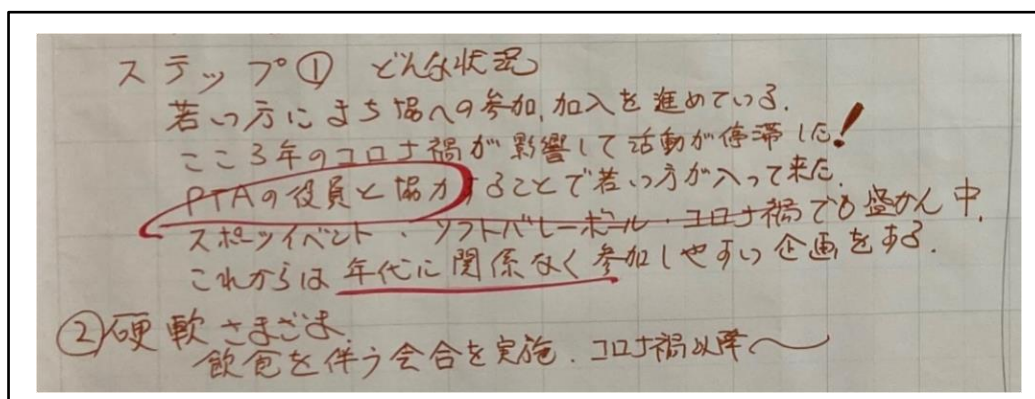 ステップ① どんな状況
若い方にまち協への参加、加入を進めている.
ここ3年のコロナ禍が影響して活動が停滞した!
PTAの役員と協力することで若い方が入って来た.
スポーツイベント・ソフトバレーボール・コロナ禍でも盛かん中.
これからは年代に関係なく参加しやすい企画をする.
②硬軟さまざま
飲食を伴う会合を実施. コロナ禍以降〜